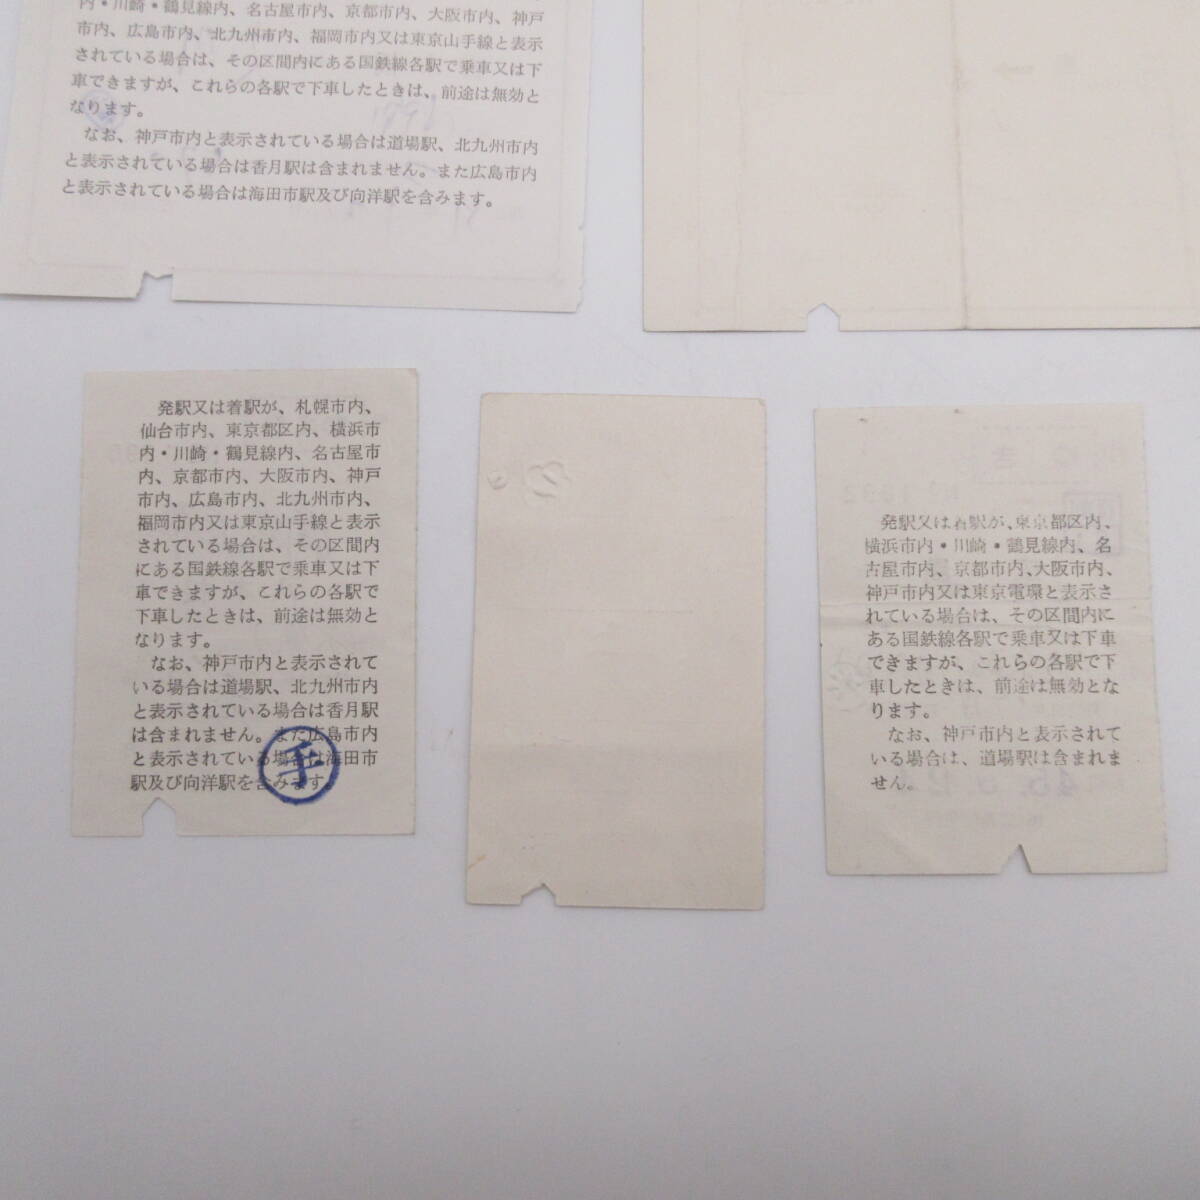 内・川崎・鶴見線内、名古屋市内、京都市内、大阪市内、神戸
市内、広島市内、北九州市内、福岡市内又は東京山手線と表示
されている場合は、その区間内にある国鉄線各駅で乗車又は下
車できますが、これらの各駅で下車したときは、前途は無効と
なります。
なお、神戸市内と表示されている場合は道場駅、北九州市内
と表示されている場合は香月駅は含まれません。また広島市内
と表示されている場合は海田市駅及び向洋駅を含みます。
発駅又は着駅が、札幌市内、
仙台市内、東京都区内、横浜市
内・川崎・鶴見線内、名古屋市
内、京都市内、大阪市内、神戸
市内、広島市内、北九州市内、
福岡市内又は東京山手線と表示
されている場合は、その区間内
にある国鉄線各駅で乗車又は下
車できますが、これらの各駅で
下車したときは、前途は無効と
なります。
なお、神戸市内と表示されて
いる場合は道場駅、北九州市内
と表示されている場合は香月駅
は含まれません。また広島市内
と表示されている場合は海田市
駅及び向洋駅を含みます。
手
発駅又は着駅が、東京都区内、
横浜市内・川崎・鶴見線内、名
古屋市内、京都市内、大阪市内、
神戸市内又は東京電環と表示さ
れている場合は、その区間内に
ある国鉄線各駅で乗車又は下車
できますが、これらの各駅で下
車したときは、前途は無効とな
ります。
なお、神戸市内と表示されて
いる場合は、道場駅は含まれま
せん。